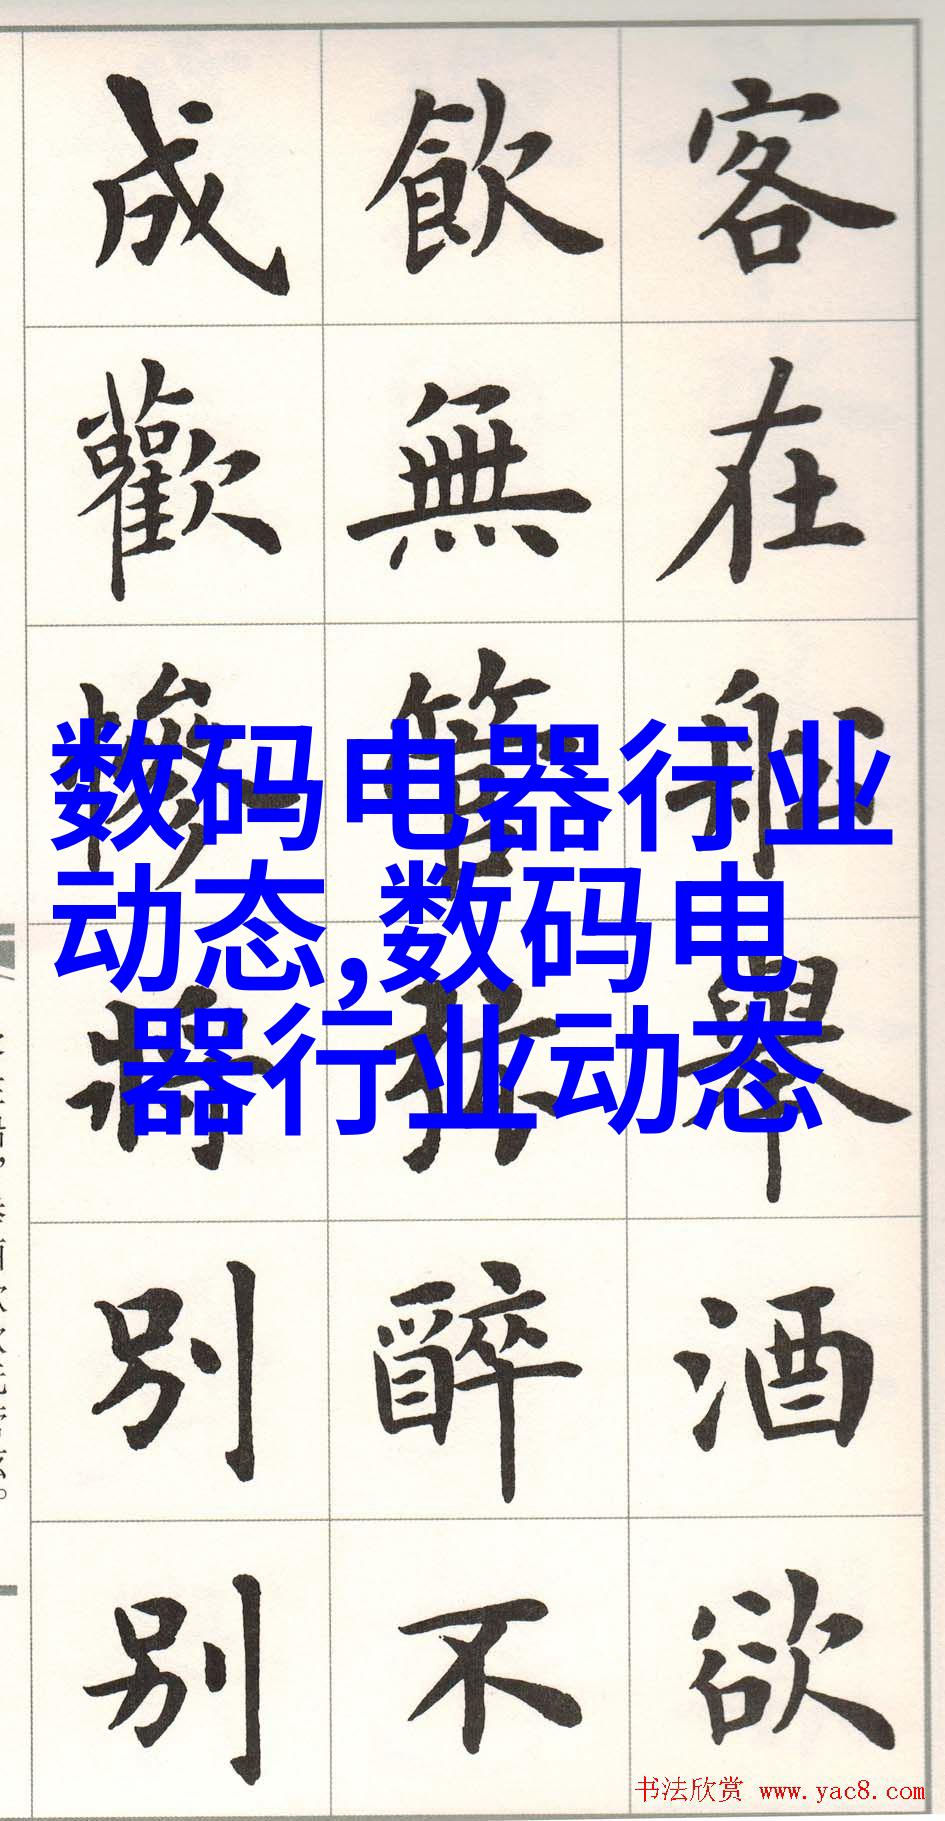 客在船舉酒欲
飲無管醉不
成歡慘將別別
数码电器行业
动态,数码电
器行业动态
书法欣赏 www.yac8.com